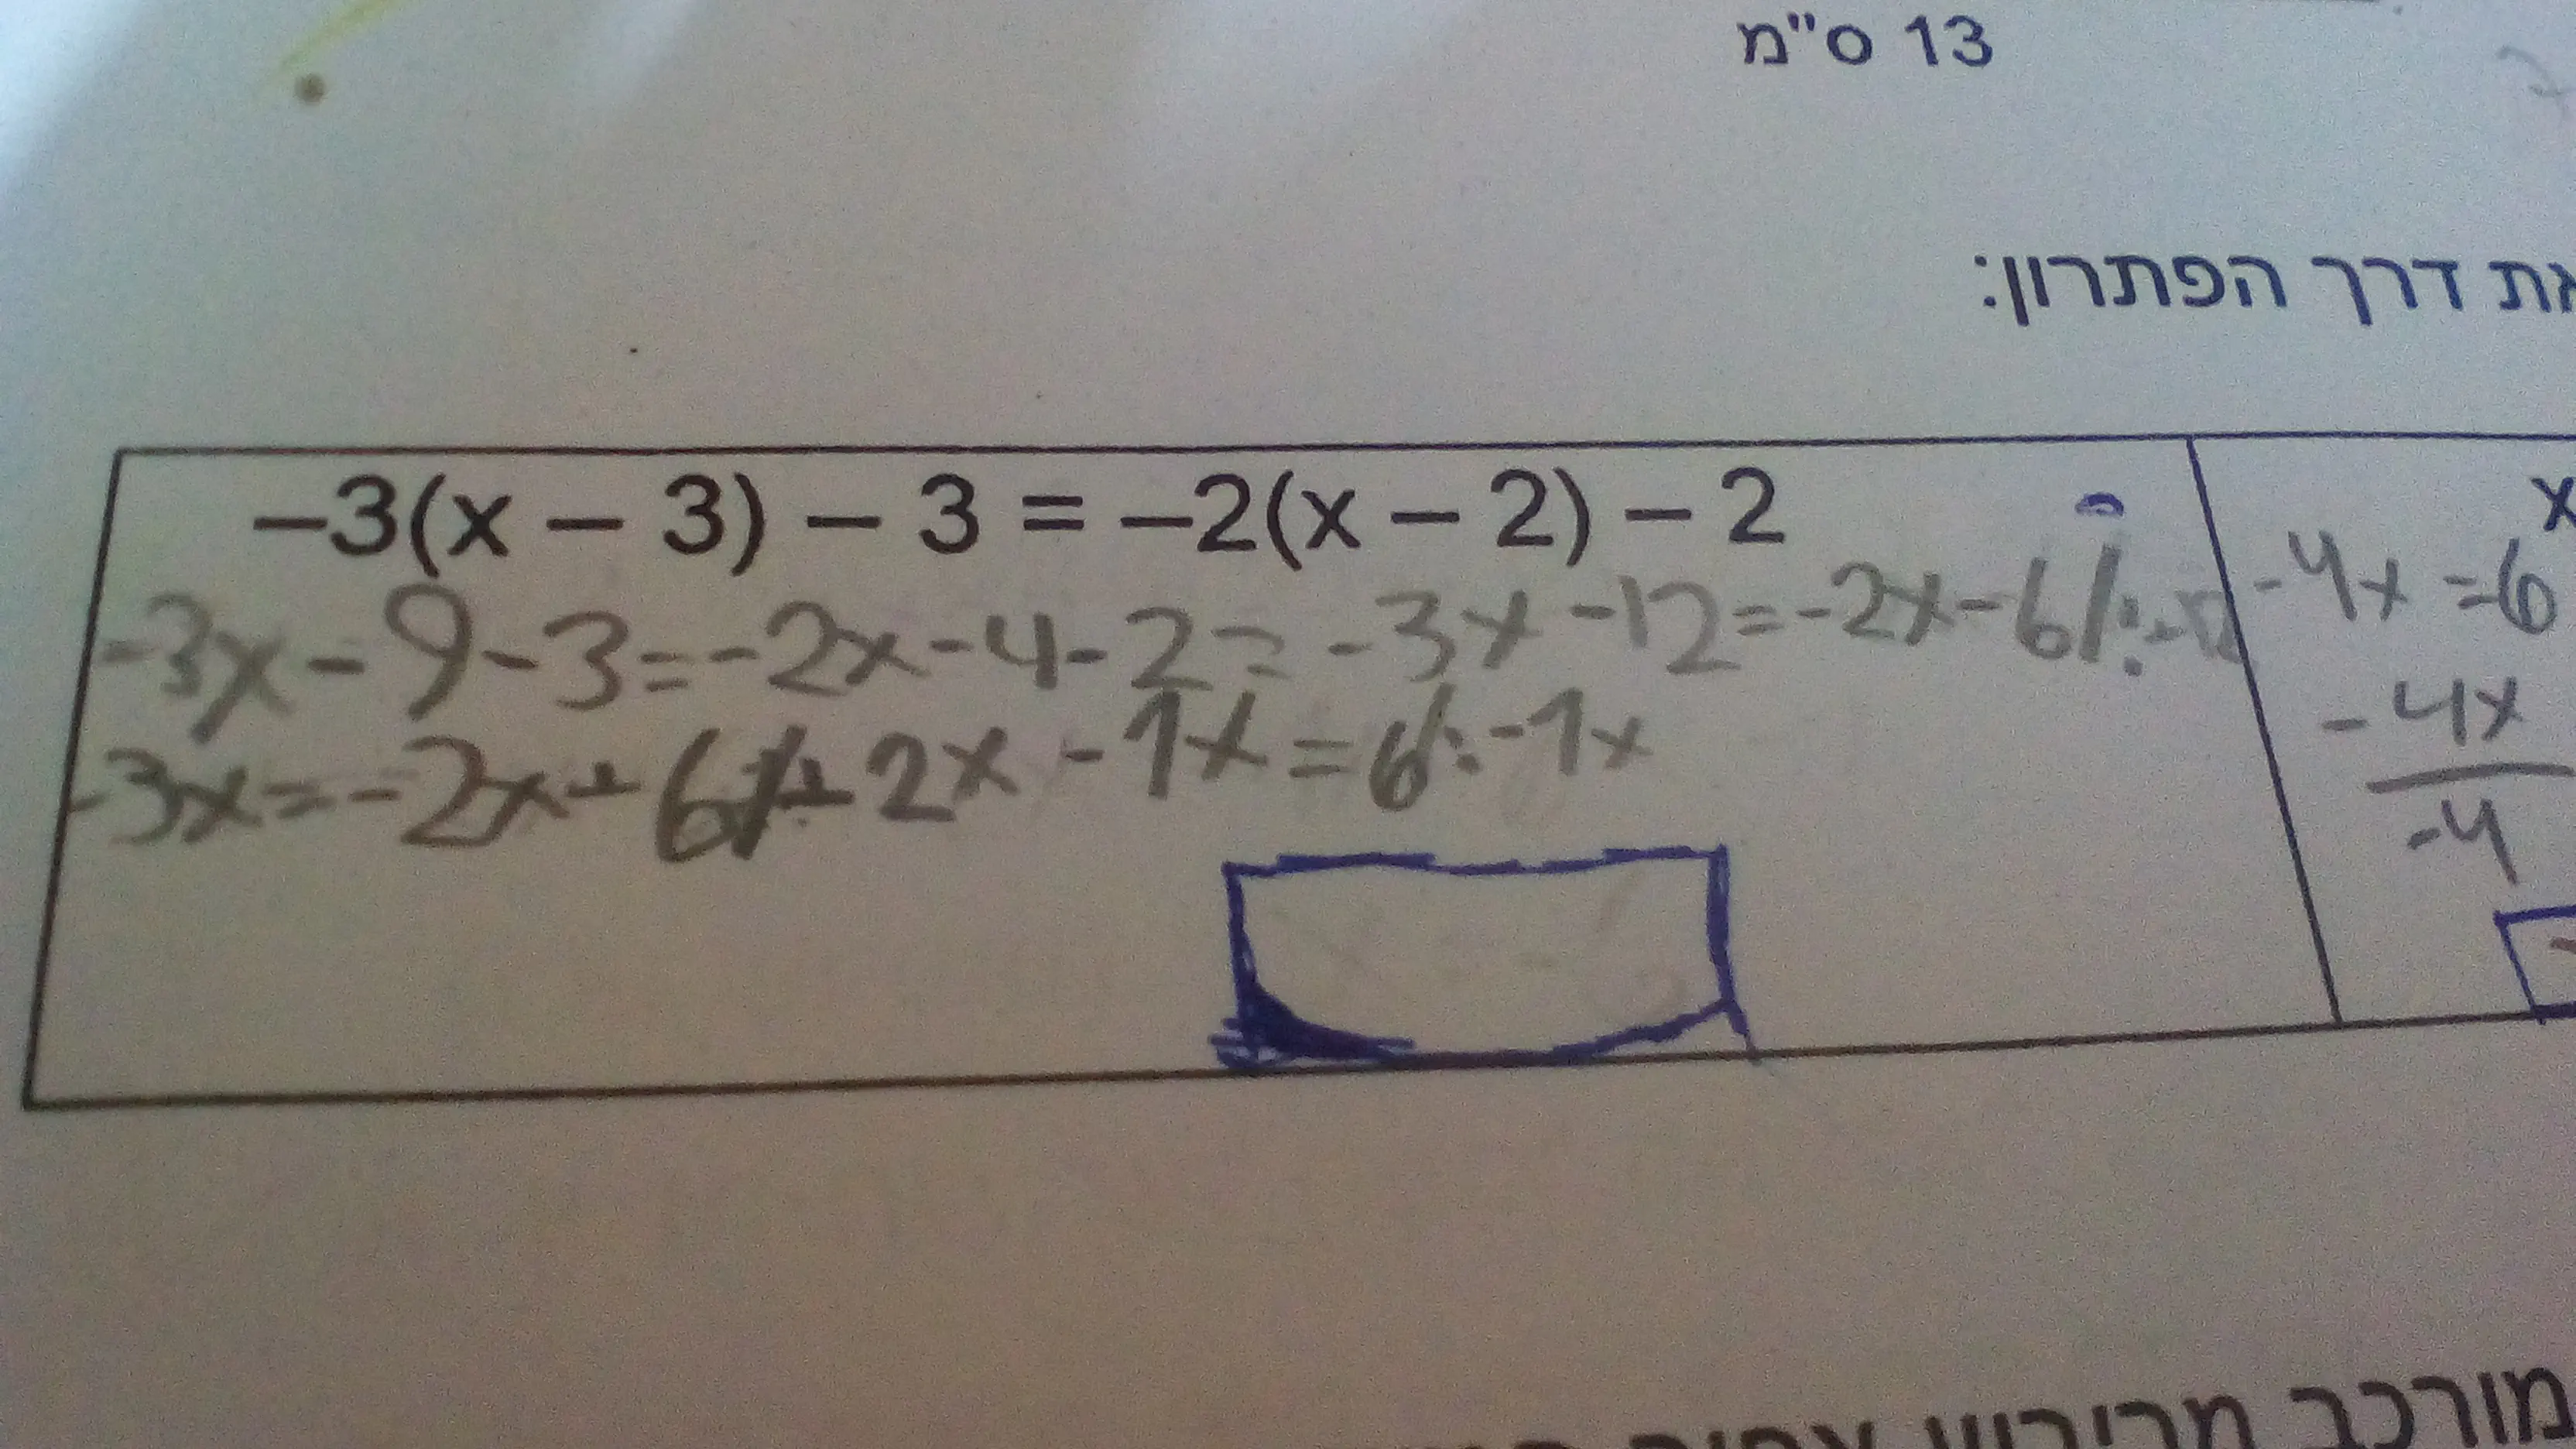 13 ס"מ
את דרך הפתרון:
-3(x - 3) - 3 = -2(x - 2) - 2
-3x-9-3=-2x-4-2= -3x-12=-2x-6/:-12
-3x=-2x+6/+2x -1x=6/:-1x
x
-4x=6
-4x
-4
מורכב